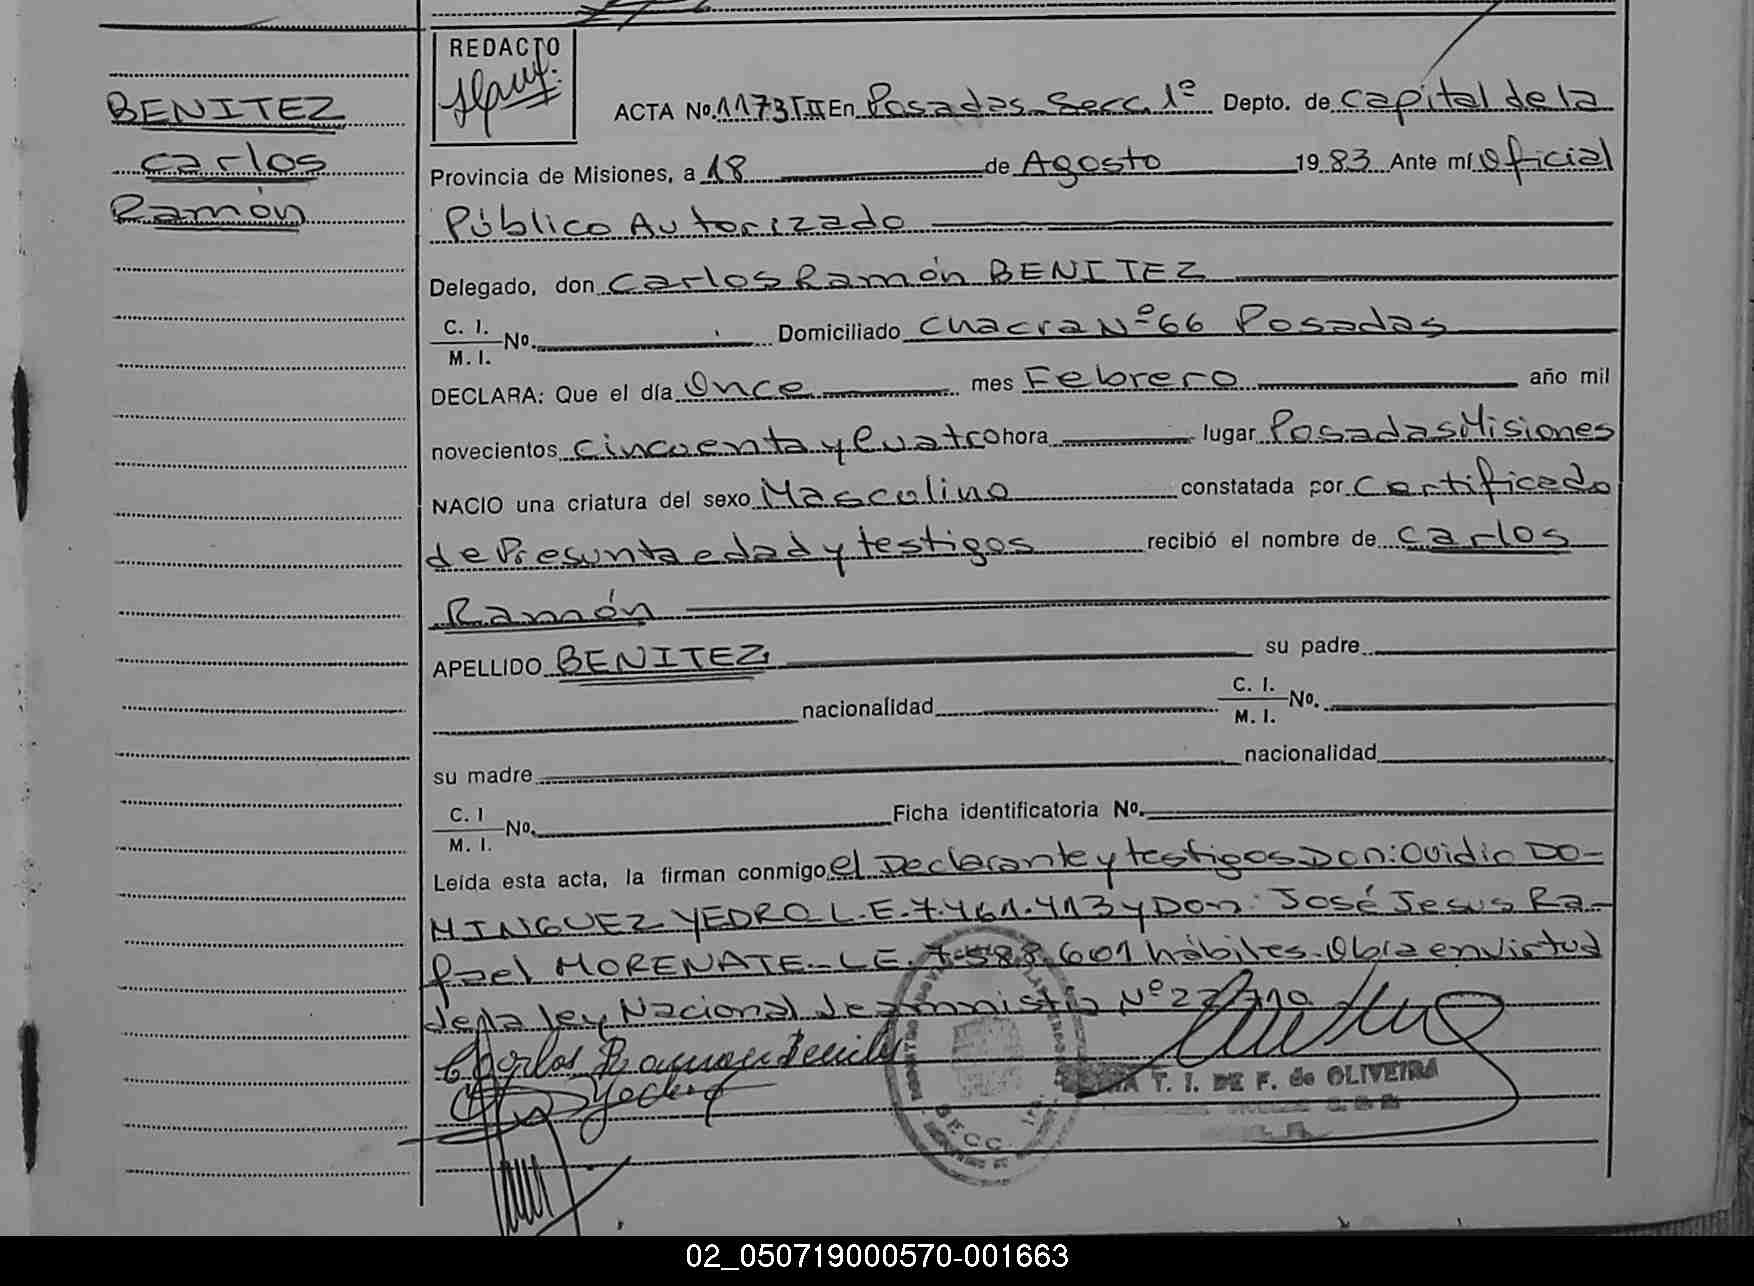 BENITEZ
Carlos
Ramón
REDACTO
ACTA No. 1173 T II En Posadas Secc. 1º Depto. de Capital de la
Provincia de Misiones, a 18 de Agosto 1983 Ante mí Oficial
Público Autorizado
Delegado, don Carlos Ramón BENITEZ
C. I.
M. I. No. Domiciliado Chacra Nº 66 Posadas
DECLARA: Que el día Once mes Febrero año mil
novecientos cincuenta y Cuatro hora lugar Posadas Misiones
NACIO una criatura del sexo Masculino constatada por Certificado
de Presunta edad y testigos recibió el nombre de Carlos
Ramón
APELLIDO BENITEZ su padre
nacionalidad C. I.
M. I. No.
su madre nacionalidad
C. I
M. I. No. Ficha identificatoria No.
Leída esta acta, la firman conmigo el Declarante y testigos Don: Ovidio DO-
MINGUEZ YEDRO L.E. 7.461.413 y Don: José Jesus Ra-
fael MORENATE - L E. 7.588.601 hábiles. Obra en virtud
de la ley Nacional de amnistía Nº
Carlos Ramon Benitez
T. I. DE F. de OLIVEIRA
SECC. 1ra.
02_050719000570-001663